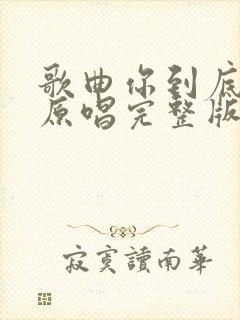 歌曲你到底
原唱完整版
寂寞讀南華